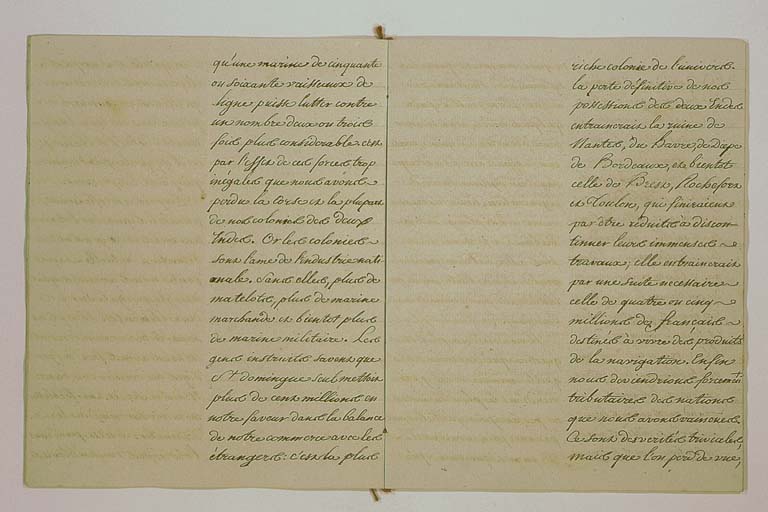 qu'une marine de cinquante
ou soixante vaisseaux de
ligne puisse lutter contre
un nombre deux ou trois
fois plus considerable. c'est
par l'effet de ces forces trop
inégales que nous avons
perdu la Corse et la plupart
de nos colonies des deux
Indes. Or les colonies
sont l'ame de l'industrie nati-
onale. Sans elles, plus de
matelots, plus de marine
marchande et bientot plus
de marine militaire. Les
gens instruits savent que
St. domingue seul mettoit
plus de cent millions en
notre faveur dans la balance
de notre commerce avec les
étrangers: c'est la plus
riche colonie de l'univers.
la perte définitive de nos
possessions des deux Indes
entrainerait la ruine de
Nantes, du Havre, de
de Bordeaux, et bientot
celle de Brest, Rochefort
et Toulon, qui finiraient
par être réduits à discon-
tinuer leurs immenses
travaux; elle entrainerait
par une suite necessaire
celle de quatre ou cinq
millions de français
destinés à vivre des produits
de la navigation. Enfin
nous deviendrions forcemt.
tributaires des nations
que nous avons vaincues.
Ce sont des verités triviales
mais que l'on perd de vue,